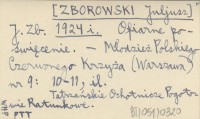 [ZBOROWSKI Juljusz]
J. Zb. 1924 i. Ofiarne po-
święcenie. — Młodzież Polskiego
Czerwonego Krzyża (Warszawa)
nr 9: 10-11, il.
Tatrzańskie Ochotnicze Pogoto-
wie Ratunkowe.
PTT